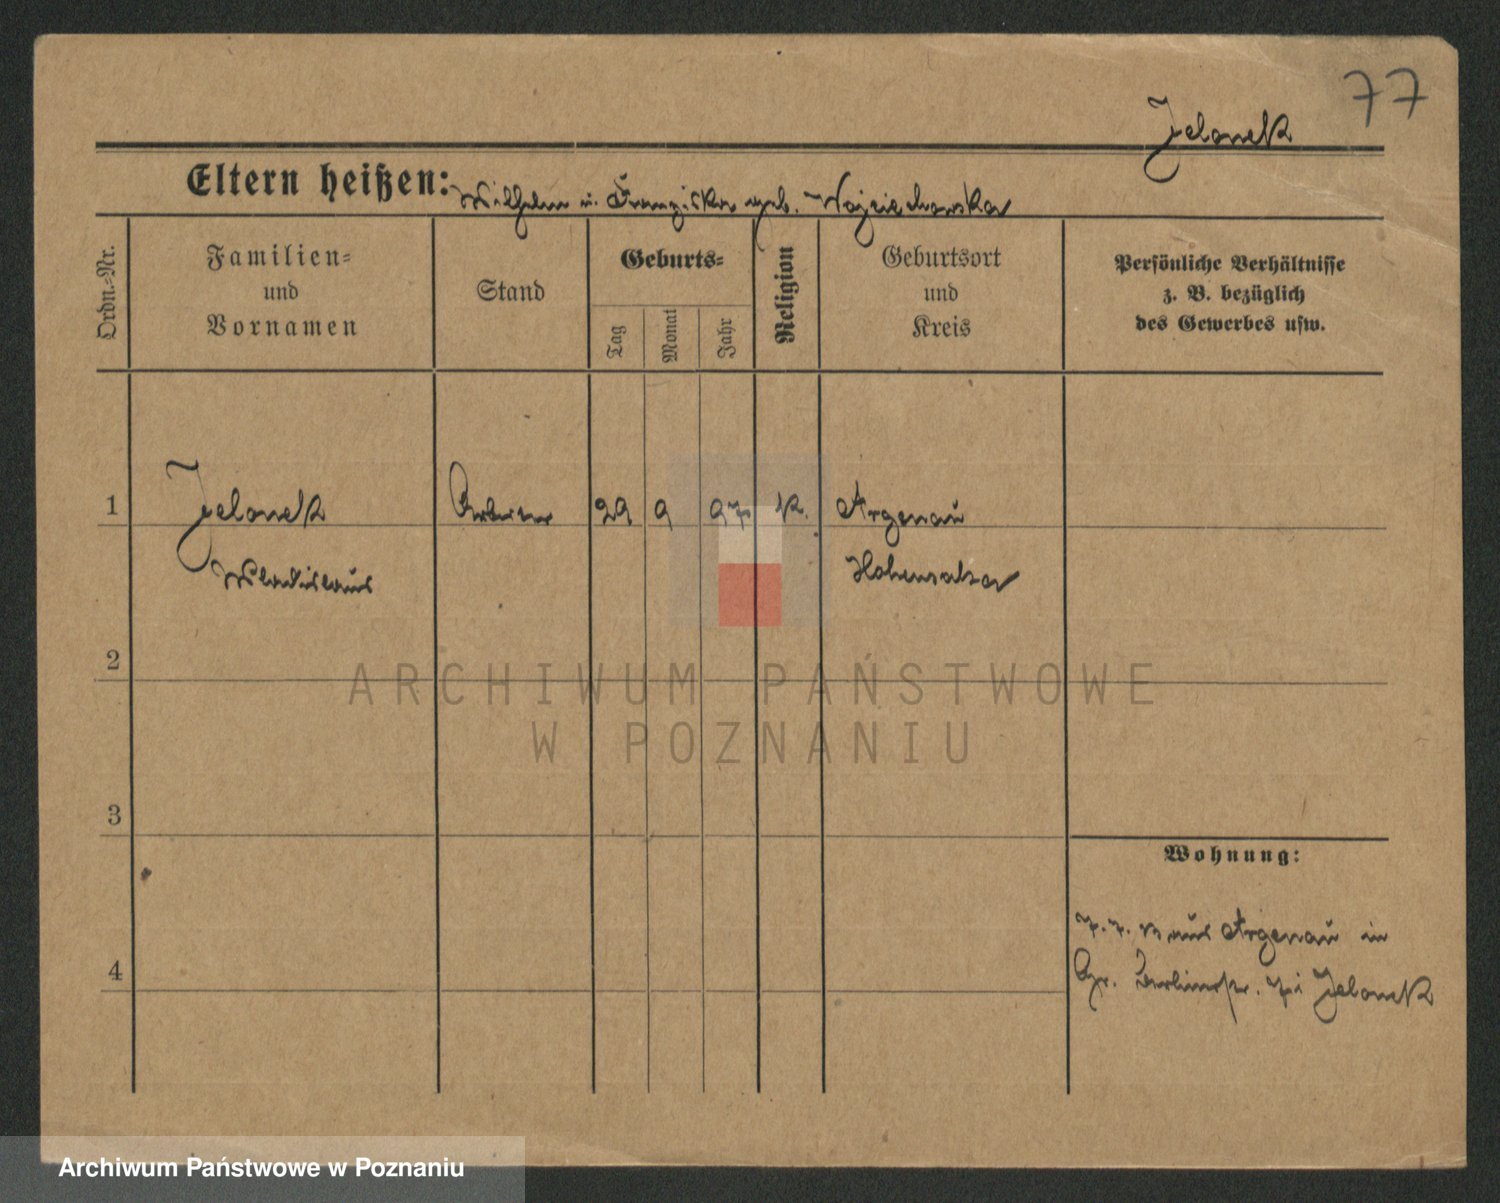 77
Jelonek
Eltern heißen: Wilhelm u. Franziska geb. Wojciechowska
Ordn.-Nr.
Familien-
und
Vornamen
Stand
Geburts-
Tag
Monat
Jahr
Religion
Geburtsort
und
Kreis
Persönliche Verhältnisse
z. B. bezüglich
des Gewerbes usw.
1 Jelonek Arbeiter 29 9 97 k. Argenau
Wladislaus Hohensalza
2
ARCHIWUM PAŃSTWOWE
W POZNANIU
3
Wohnung:
7.7. aus Argenau in
4
Berlinerstr. Jelonek
Archiwum Państwowe w Poznaniu